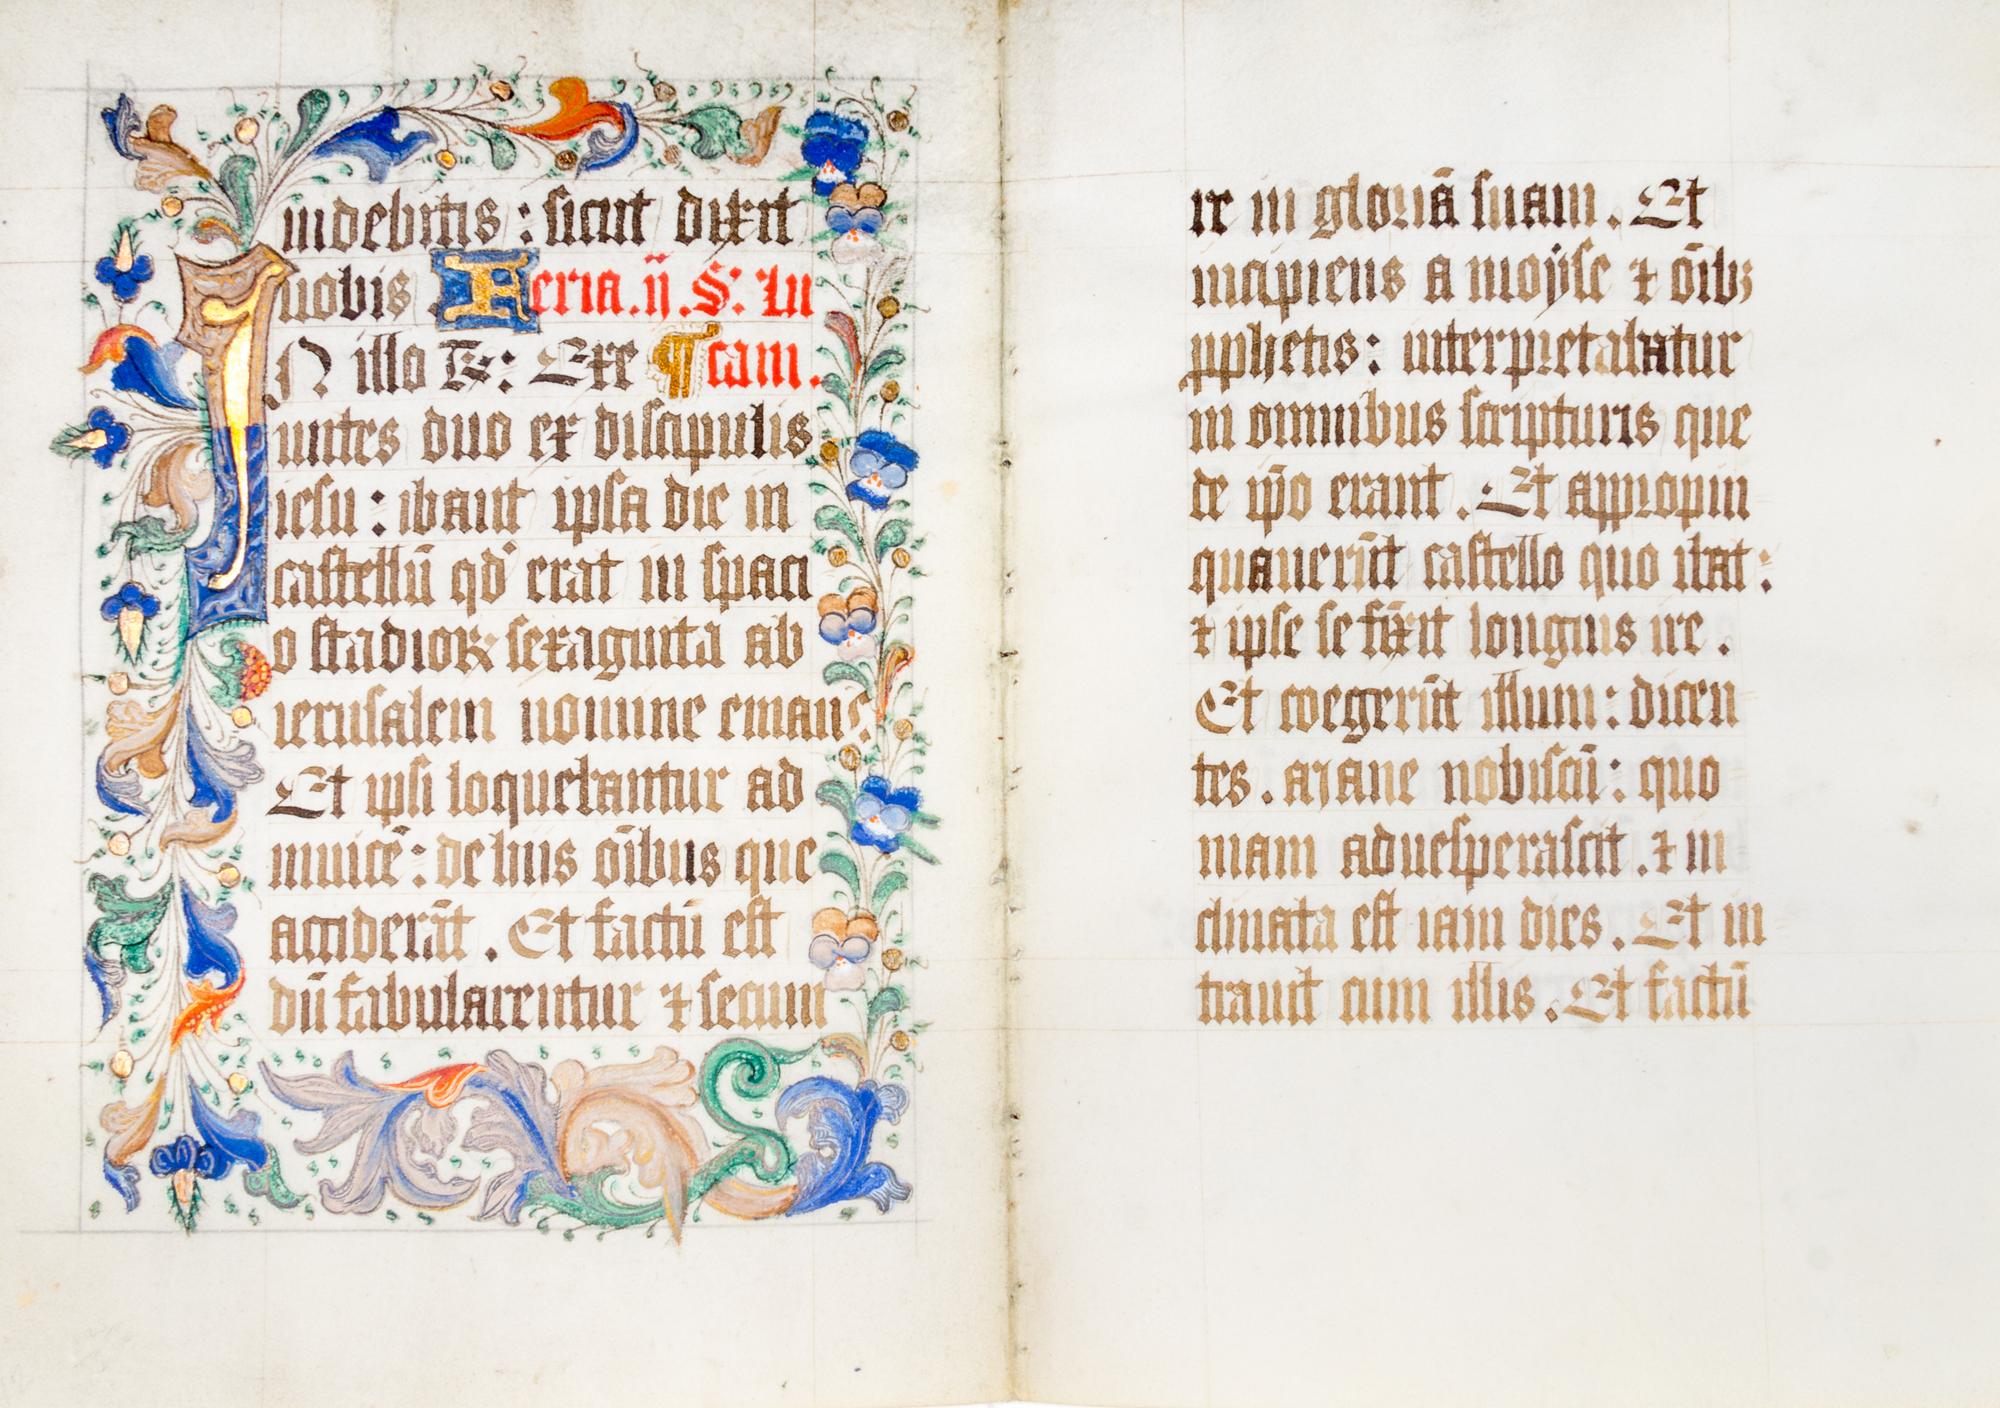 uidebitis : sicut dixit
uobis . Feria . ij . S: Lu
IN illo T̄: Exe ¶ cam.
untes duo ex discipulis
iesu : ibant ipsa die in
castellū qd erat in spaci
o stadioꝝ sexaginta ab
ierusalem nomine emaus.
Et ipsi loquebantur ad
inuicē : de hiis oībus que
acciderāt . Et factū est
dū fabularentur ⁊ secum
ir in gloriā suam . Et
incipiens a moyse ⁊ oībꝫ
ꝓphetis : interpretabatur
in omnibus scripturis que
de ip̄o erant . Et appropin
quauerūt castello quo ibāt :
⁊ ipse se fīxit longius ire .
Et coegerūt illum : dicen
tes . Mane nobiscū : quo
niam aduesperascit . ⁊ in
clinata est iam dies . Et in
trauit cum illis . Et factū